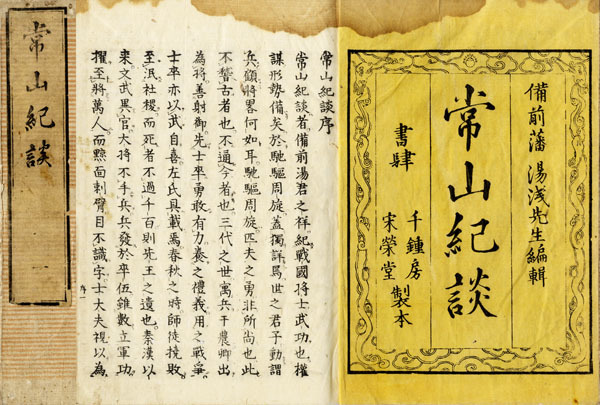 備前藩 湯浅先生編輯
常山紀談
書肆
千鍾房
宋榮堂
製本
常山紀談序
常山紀談者備前湯君之祥紀戰國將士武功也權
謀形勢備矣於馳驅周旋蓋獨詳焉世之君子動謂
兵顧將畧何如耳馳驅周旋匹夫之勇非所尚也此
不誊古者也不通今者也三代之世寓兵于農卿出
為將善射御先士卒勇敢有力養之禮義用之戰爭
士卒亦以武自喜左氏具載焉春秋之時師徒撓敗
至泯社稷而死者不過千百則先王之遺也秦漢以
来文武異官大将不手兵兵發於卒伍雖數立軍功
擢至將萬人而黥面刺臂目不識字士大夫視以為
常山紀談
一